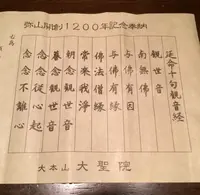 弥山開創1200年記念奉納
延命十句観音経
観世音
南無佛
与佛有因
与佛有縁
佛法僧縁
常楽我浄
朝念観世音
暮念観世音
念念従心起
念念不離心
大本山 大聖院